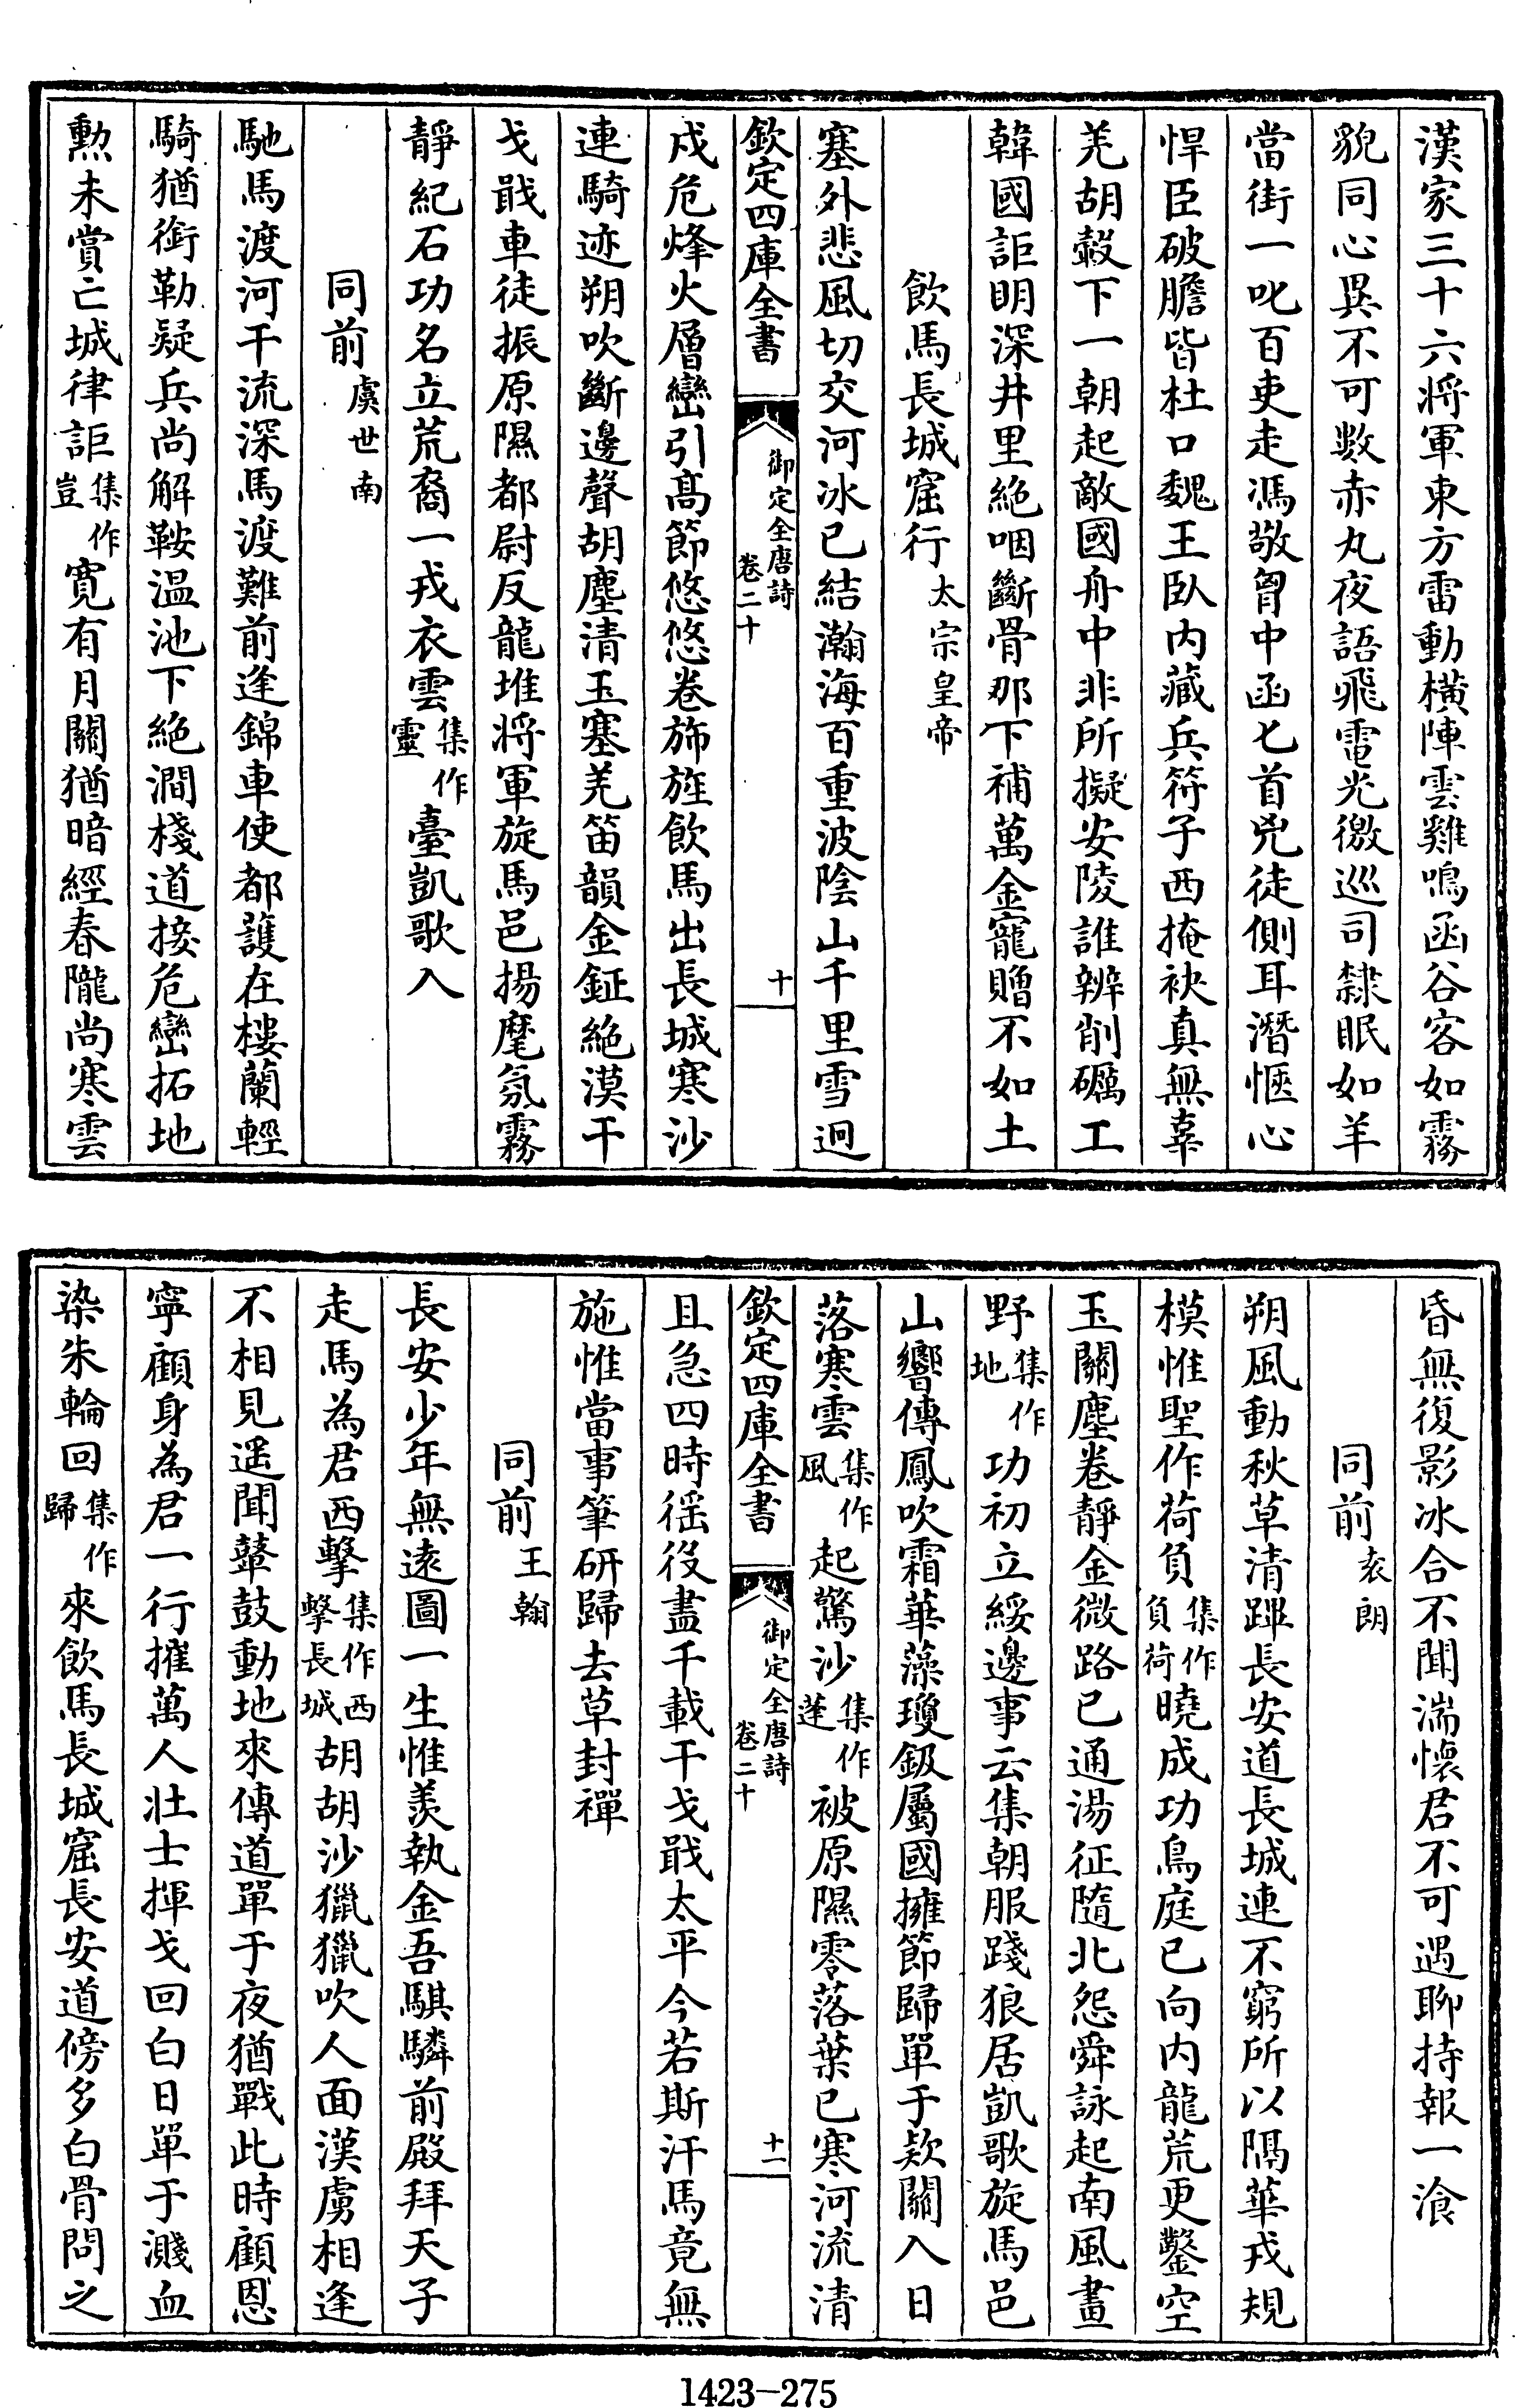 漢家三十六將軍東方雷動橫陣雲雞鳴函谷客如霧
貌同心異不可數赤丸夜語飛電光徼巡司隸眠如羊
當街一叱百吏走馮敬胷中函匕首兇徒側耳潛愜心
悍臣破膽皆杜口魏王臥內藏兵符子西掩袂真無辜
羌胡轂下一朝起敵國舟中非所擬安陵誰辨削礪工
韓國詎明深井里絶咽斷骨那下補萬金寵贈不如土
飲馬長城窟行太宗皇帝
塞外悲風切交河冰已結瀚海百重波陰山千里雪迥
欽定四庫全書
御定全唐詩
卷二十
十
戍危烽火層巒引高節悠悠卷斾旌飲馬出長城寒沙
連騎迹朔吹斷邊聲胡塵清玉塞羌笛韻金鉦絶漠干
戈戢車徒振原隰都尉反龍堆將軍旋馬邑揚麾氛霧
靜紀石功名立荒裔一戎衣雲集作靈臺凱歌入
同前虞世南
馳馬渡河干流深馬渡難前逢錦車使都護在樓蘭輕
騎猶銜勒疑兵尚解鞍温池下絶澗棧道接危巒拓地
勲未賞亡城律詎集作豈寛有月關猶暗經春隴尚寒雲
昏無復影冰合不聞湍懷君不可遇聊持報一飡
同前袁朗
朔風動秋草清蹕長安道長城連不窮所以隔華戎規
模惟聖作荷負集作負荷曉成功鳥庭已向内龍荒更鑿空
玉關塵卷靜金微路已通湯征隨北怨舜詠起南風畫
野集作地功初立綏邊事云集朝服踐狼居凱歌旋馬邑
山響傳鳳吹霜華藻瓊鈒屬國擁節歸單于欵關入日
落寒雲集作風起驚沙集作蓬被原隰零落葉已寒河流清
欽定四庫全書
御定全唐詩
卷二十
十一
且急四時徭役盡千載干戈戢太平今若斯汗馬竟無
施惟當事筆研歸去草封禪
同前王翰
長安少年無遠圖一生惟羨執金吾騏驎前殿拜天子
走馬為君西擊集作西擊長城胡胡沙獵獵吹人面漢虜相逢
不相見遥聞鼙鼓動地來傳道單于夜猶戰此時顧恩
寧顧身為君一行摧萬人壯士揮戈回白日單于濺血
染朱輪回集作歸來飲馬長城窟長安道傍多白骨問之
1423—275